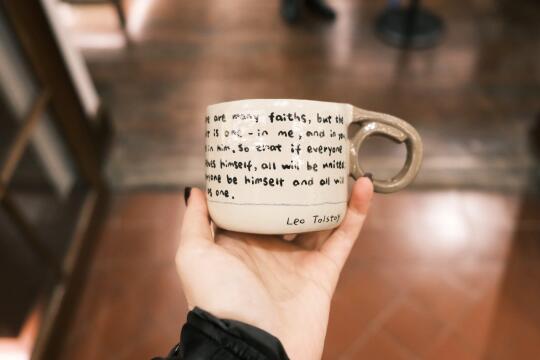 are many faiths, but the
is one - in me, and in you
in him. So that if everyone
himself, all will be united.
be himself and all will
as one.
Leo Tolstoy